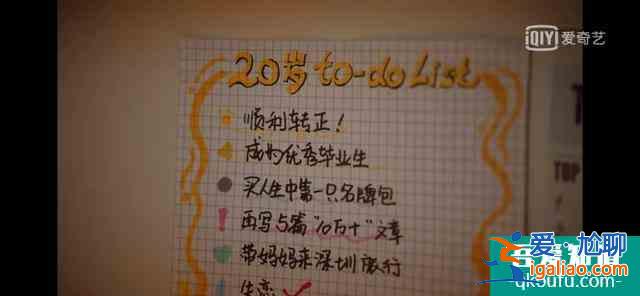 iQIYI 爱奇艺
20岁 to-do List
顺利转正！
成为优秀毕业生
买人生中第一只名牌包
再写5篇“10万+”文章
带妈妈来深圳旅行
TOP
爱·尬聊
igaliao.com
qk5ufu.com